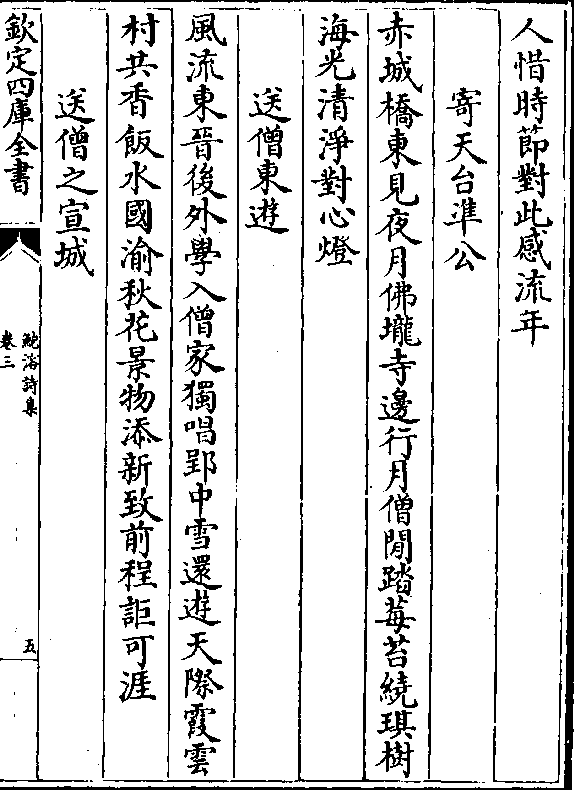 人惜時節對此感流年
寄天台準公
赤城橋東見夜月佛壠寺邊行月僧閒踏莓苔繞琪樹
海光清淨對心燈
送僧東遊
風流東晉後外學入僧家獨唱郢中雪還遊天際霞雲
村共香飯水國渝秋花景物添新致前程詎可涯
送僧之宣城
欽定四庫全書
鮑溶詩集
卷三
五